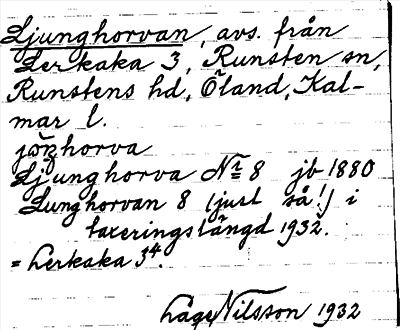 Ljunghorvan, avs. från
Lerkaka 3, Runsten sn,
Runstens hd, Öland, Kal-
mar l.
Ljunghorva Nr 8 jb 1880
Lunghorvan 8 (just så!) i
taxeringslängd 1932.
= Lerkaka 3⁴.
Låge Nilsson 1932